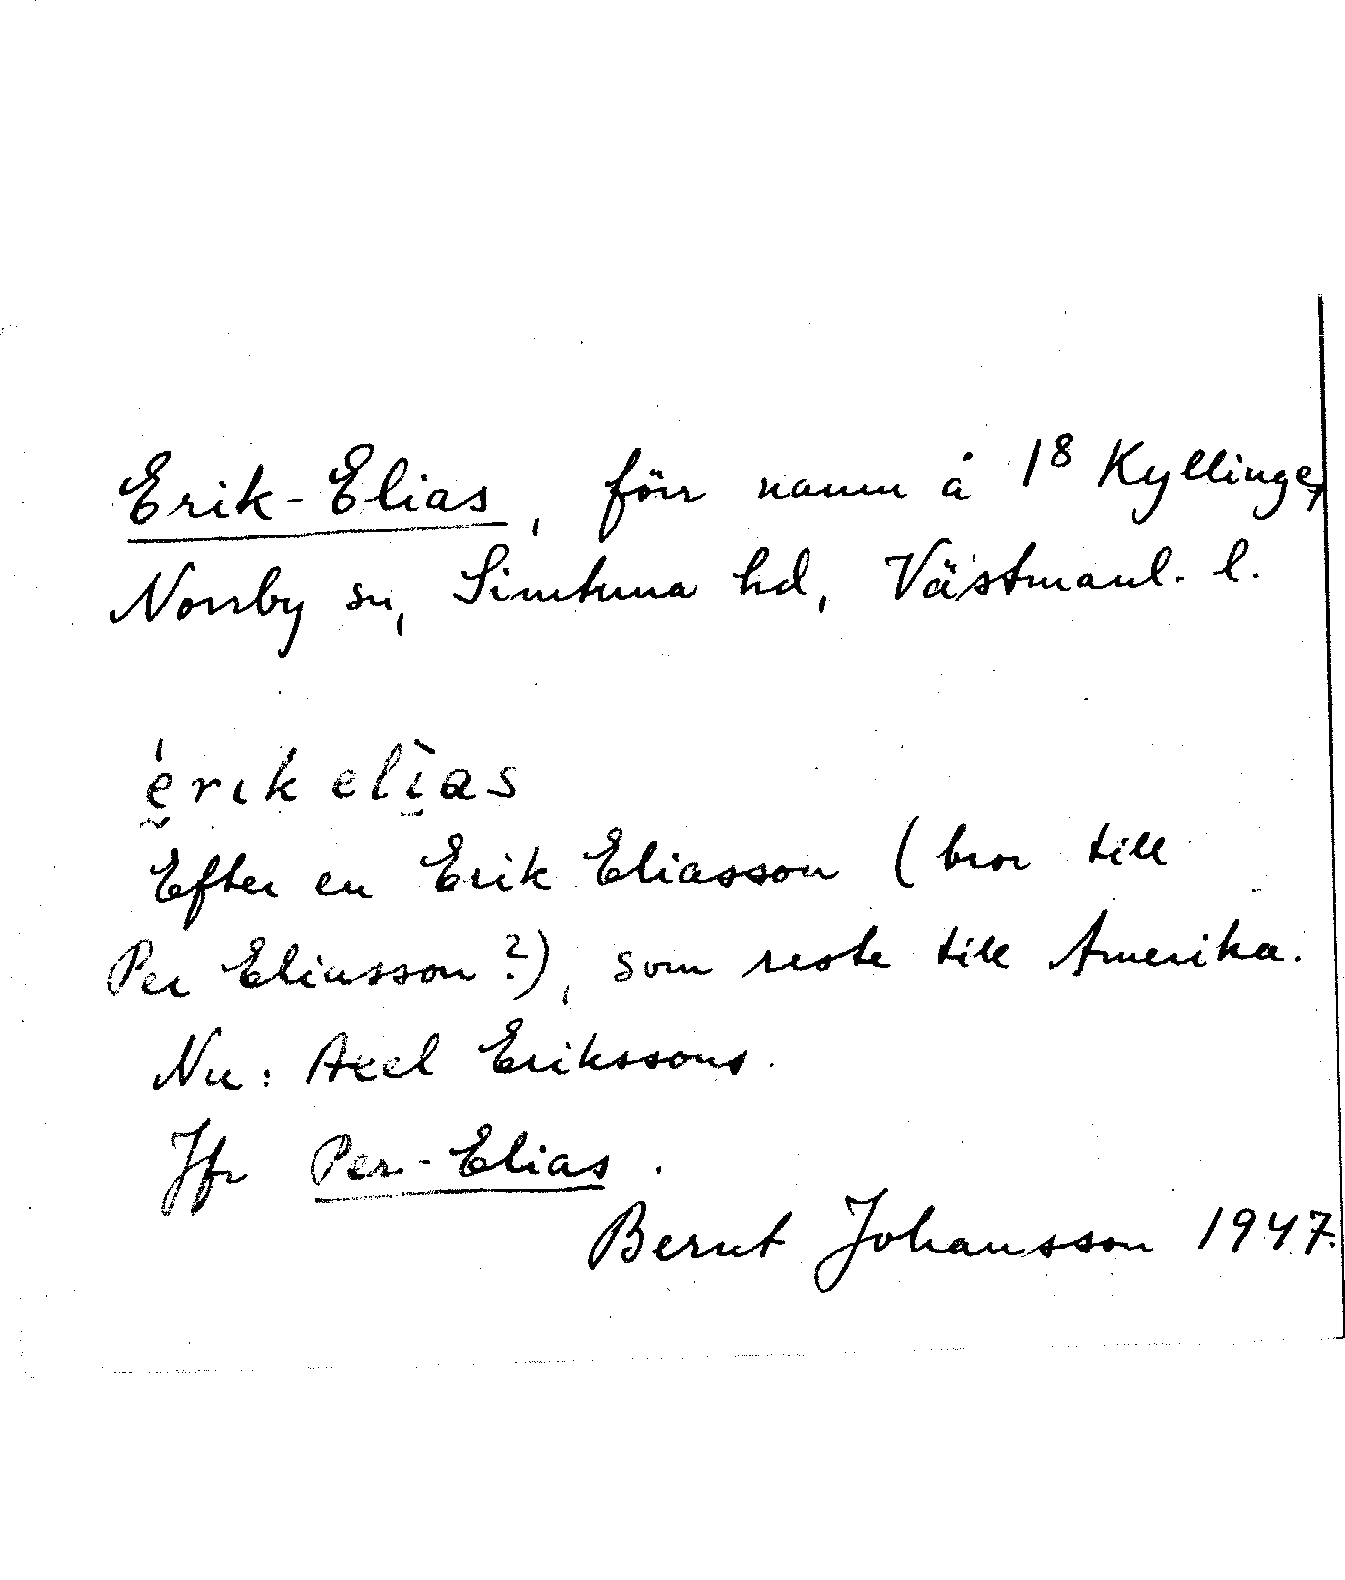 Erik-Elias, förr namn å 1⁸ Kyllinge,
Norrby sn, Simtuna hd, Västmanl. l.
érik elìas
Efter en Erik Eliasson (bror till
Per Eliasson?), som reste till Amerika.
Nu: Axel Erikssons.
Jfr Per-Elias.
Bernt Johansson 1947.